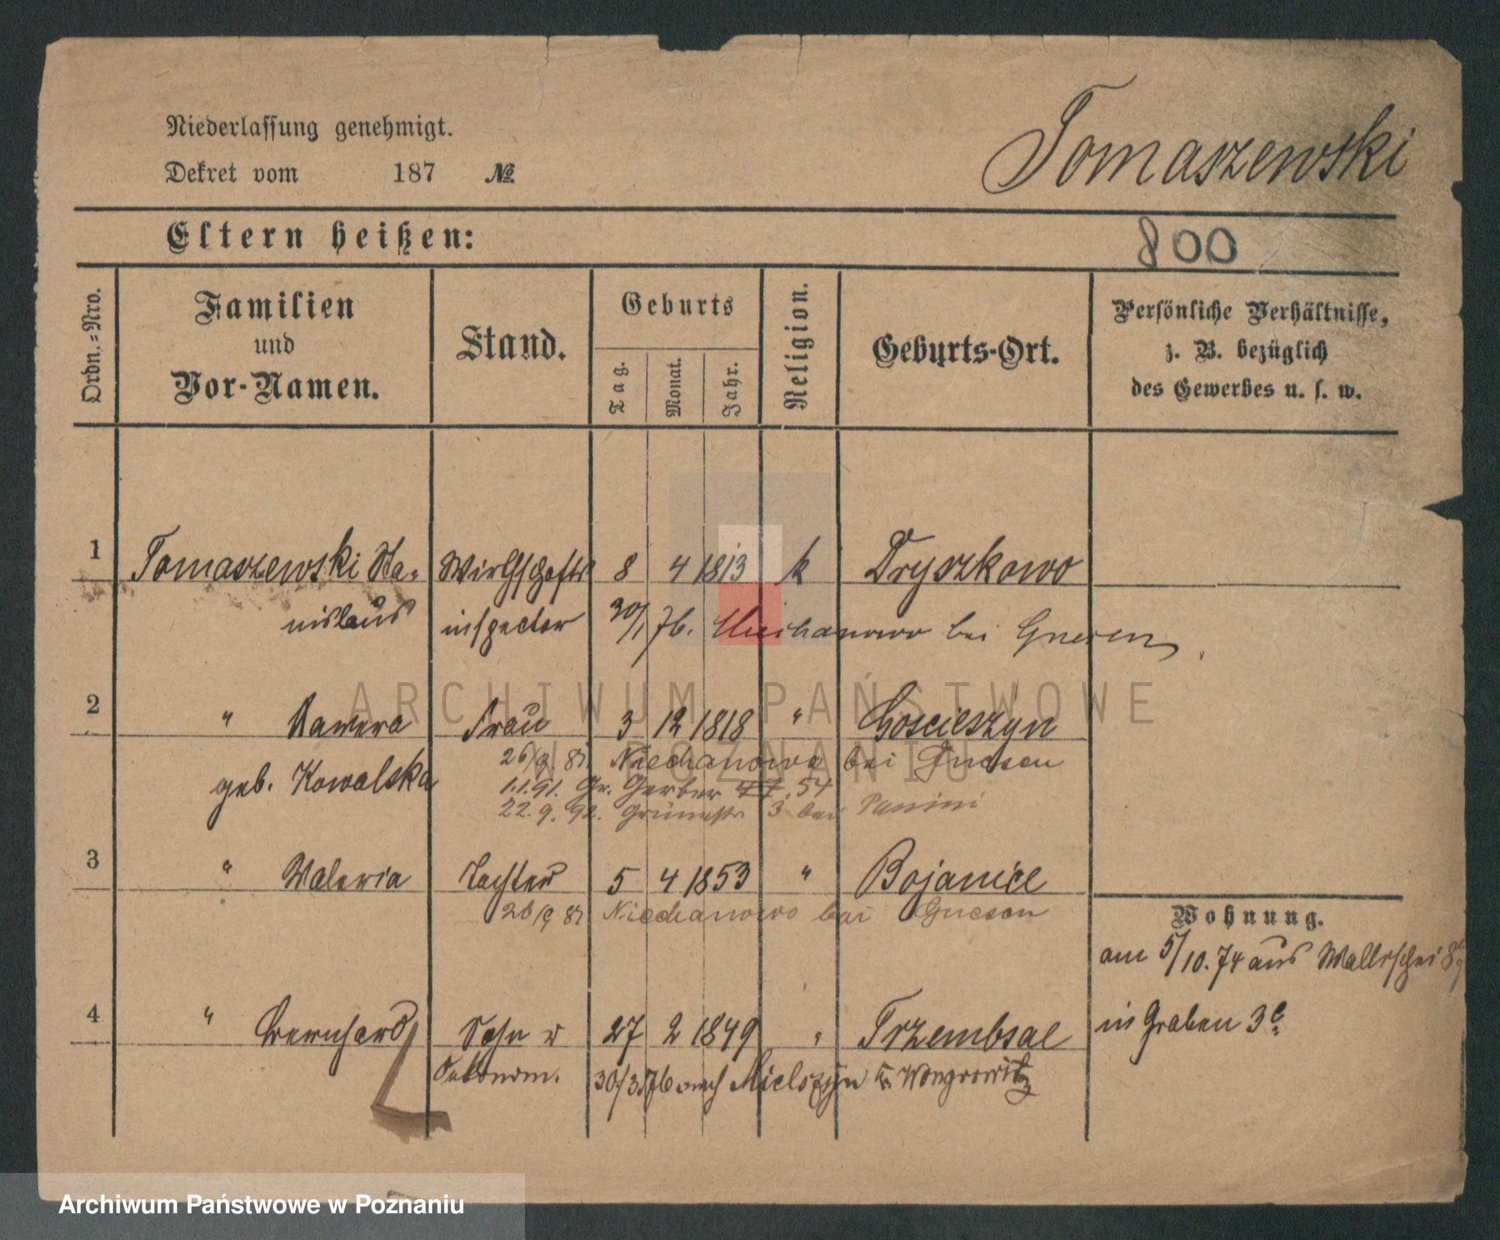 Niederlassung genehmigt.
Dekret vom 187 №
Tomaszewski
Eltern heißen:
800
Ordn.-Nro.
Familien und Vor-Namen.
Stand.
Geburts
Tag.
Monat.
Jahr.
Religion.
Geburts-Ort.
Persönliche Verhältnisse,
z. B. bezüglich
des Gewerbes u. s. w.
1 Tomaszewski Sta- Wirthschafts 8 4 1813 k Dryszkowo
nislaus inspector 30/1 76. Niechanowo bei Gnesen
2 " Xawera Frau 3 12 1818 " Goscieszyn
geb. Kowalska
26/9. 81 Niechanowo bei Gnesen
1.1.91. Gr. Gerber 54
22.9.92. 3 bei
3 " Valeria Tochter 5 4 1853 " Bojanice
26/9 81 Niechanowo bei Gnesen
Wohnung.
am 5/10. 74 aus Wallischei
4 " Bernhard Sohn 27 2 1849 " Trzembsal
in Graben 3
Oekonom. 30/3 76 nach Mielszyn Wongrowitz
ARCHIWUM PAŃSTWOWE
W POZNANIU
Archiwum Państwowe w Poznaniu